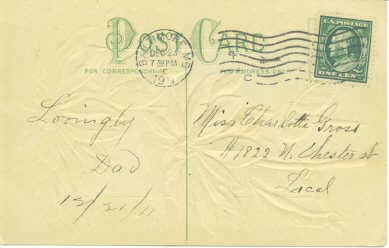 POST CARD
FOR CORRESPONDENCE
FOR ADDRESS ONLY
DEC
7 PM
U.S. POSTAGE
ONE CENT
Lovingly
Dad
12/21/11
Miss Charlotte Gross
#1822 N. Chester st
Local